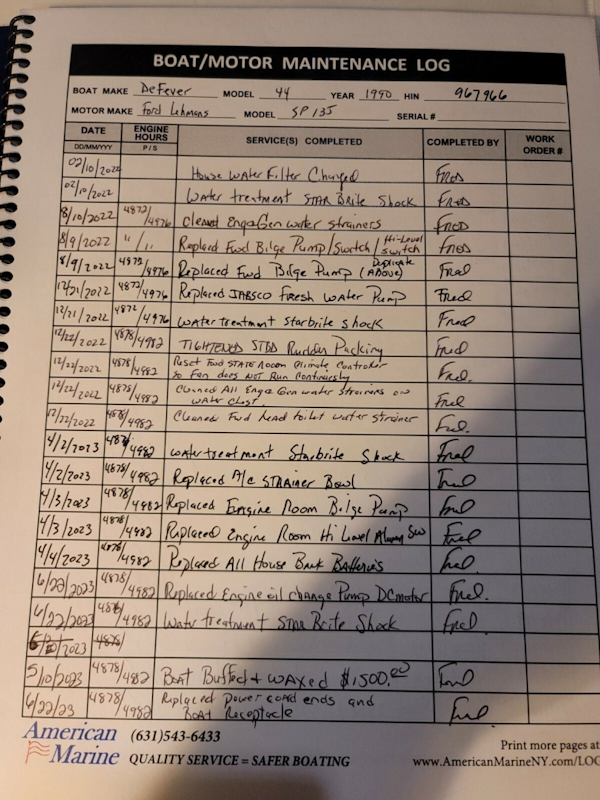 BOAT/MOTOR MAINTENANCE LOG
BOAT MAKE DeFever MODEL 44 YEAR 1990 HIN 967966
MOTOR MAKE Ford Lehmans MODEL SP 135 SERIAL #
DATE ENGINE HOURS SERVICE(S) COMPLETED COMPLETED BY WORK ORDER #
DD/MM/YYY P / S
02/10/2022 House Water Filter Changed FRED
02/10/2022 Water treatment STAR Brite Shock FRED
8/10/2022 4872/4976 Cleaned Eng&Gen water strainers FRED
8/9/2022 "/" Replaced Fwd Bilge Pump/Switch/Hi-Level switch FRED
8/9/2022 4972/4976 Replaced Fwd Bilge Pump (Duplicate Above) Fred
12/21/2022 4872/4976 Replaced JABSCO Fresh Water Pump Fred
12/21/2022 4872/4976 Water treatment Starbrite Shock Fred
12/22/2022 4878/4982 TIGHTENED STBD Rudder Packing Fred
12/22/2022 4878/4982 Reset Fwd STATE Room Climate Controler
so Fan does NOT Run Continuesly Fred.
12/22/2022 4878/4982 Cleaned All Eng& Gen water Strainers
WATER Chest Fred
12/22/2022 4878/4982 Cleaned Fwd head toilet water strainer Fred.
4/2/2023 4878/4982 Water treatment Starbrite Shock Fred
4/2/2023 4878/4982 Replaced A/c STRAINER Bowl Fred
4/3/2023 4878/4982 Replaced Engine Room Bilge Pump Fred
4/3/2023 4878/4982 Replaced Engine Room Hi Level Alarm Sw Fred
4/4/2023 4878/4982 Replaced All House Bank Batteries Fred
6/22/2023 4878/4982 Replaced Engine oil change Pump DC motor Fred.
6/22/2023 4878/4982 Water treatment STAR Brite Shock Fred.
/2023 4878/
5/10/2023 4878/482 Boat Buffed + WAXED $1,500.00 Fred
6/22/23 4878/4982 Replaced power cord ends and
Boat Receptacle Fred.
American Marine (631)543-6433
QUALITY SERVICE = SAFER BOATING
Print more pages at
www.AmericanMarineNY.com/LOG